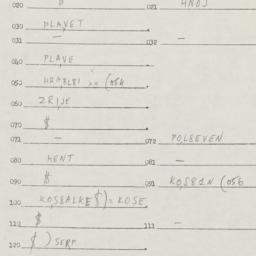 020 $ 021 HNOJ
030 PLAVET
031 — 032 —
040 PLAVE
050 (054
060 ZRIJE
070 $
071 — 072 POLSEVEN
080 HENT 081 —
090 $ 091 KOSB1N (056
100 KOSBALKE $) = KOSE
110 $ 111 —
120 $ ) SERP